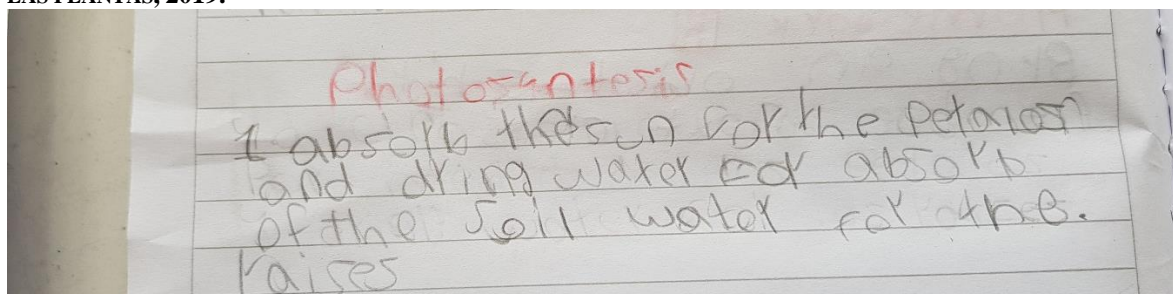 LAS PLANTAS, 2019.
Photosyntesis
1 absorb the sun for the petalos
and dring water for absorb
of the soil water for the.
raises